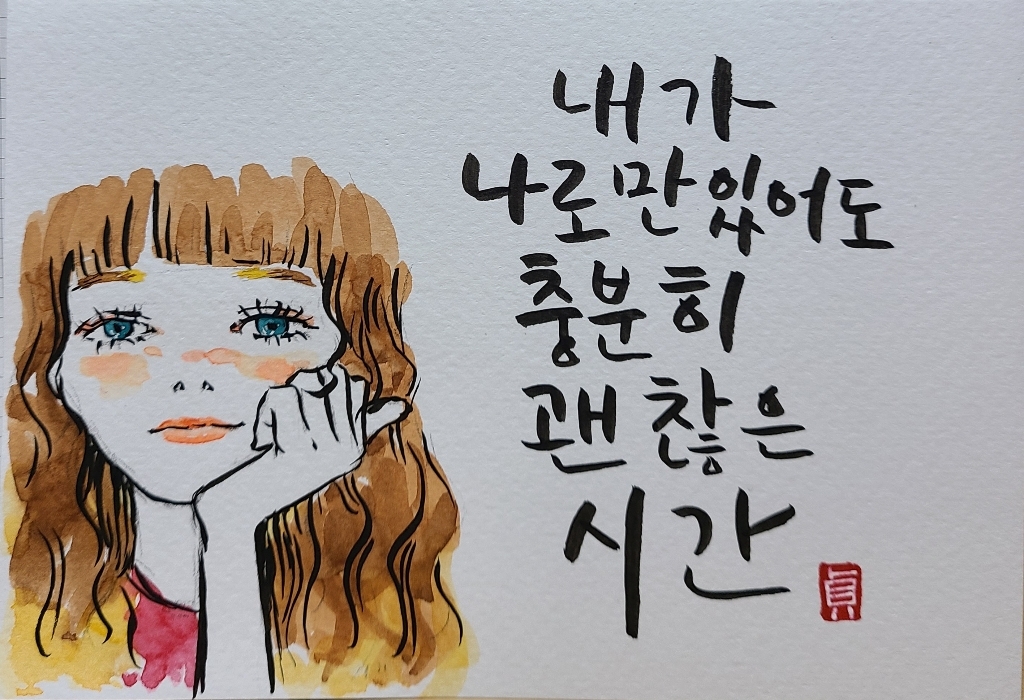 내가
나로만 있어도
충분히
괜찮은
시간
貞